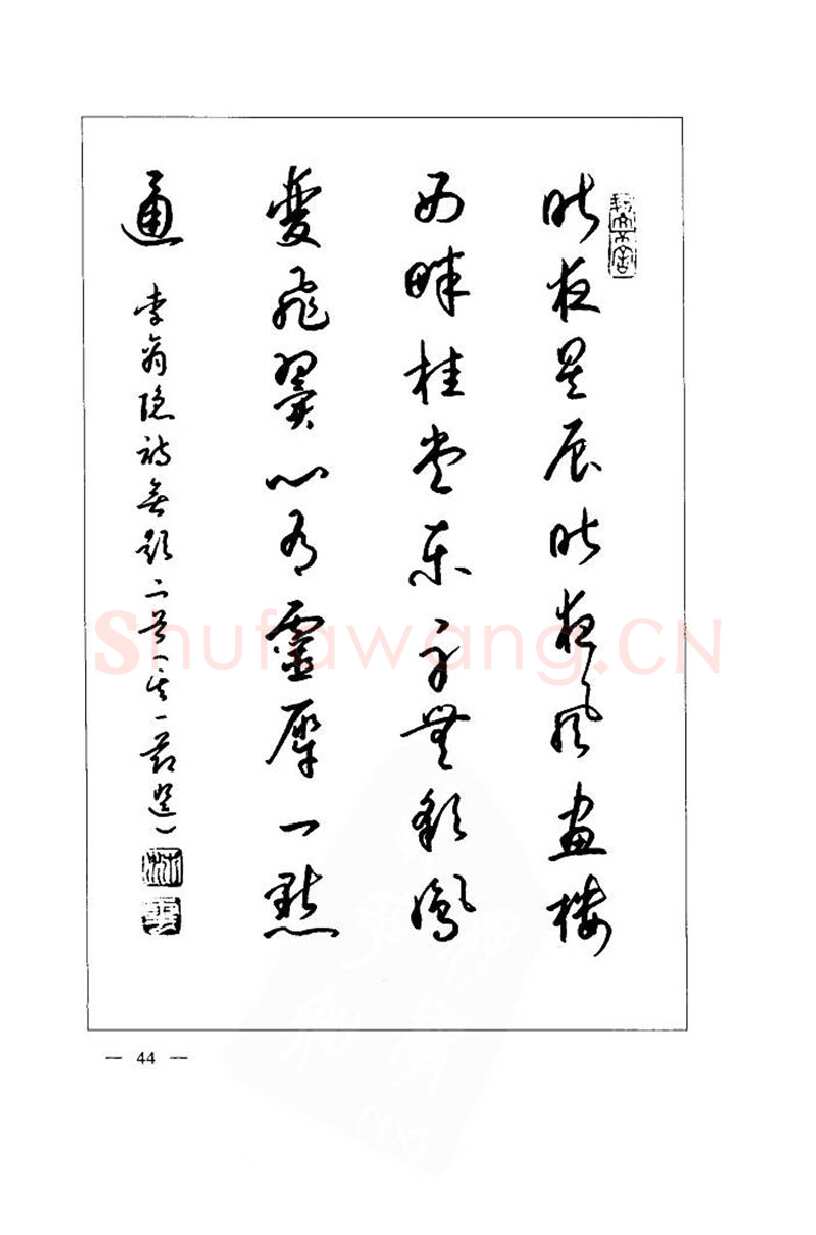 昨夜星辰昨夜風畫樓
西畔桂堂東身無彩鳳
雙飛翼心有靈犀一點
通
李商隐詩無題二首（其一節選）
Shufawang.CN
— 44 —